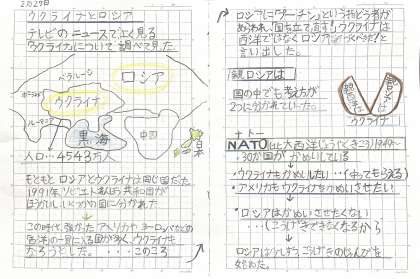 2月27日
ウクライナとロシア
テレビのニュースでよく見る
ウクライナについて調べて見た。
ベラルーシ
ロシア
ポーランド
ウクライナ
ルーマニア
黒海
中国
日本
人口…4543万人
もともとロシアとウクライナは同じ国だった。
1991年、ソビエト
ほうかいし、いくつかの国に分かれた
この時代、強かったアメリカやヨーロッパなどの
西洋の一員に入る国が多く、ウクライナも
なろうとした。・・・このころ
ロシアに「プーチン」という指どう者が
あらわれ、国を立て直す!ウクライナは
西洋ではなくロシアになるべきだ!と
言い出した。
親ロシアは
国の中でも考え方が
2つに分かれていた。
ウクライナ
ナトー
NATO(北大西洋じょうやくきこう)1949〜
・30か国が かめいしている
・ウクライナもかめいしたい…(守ってもらえる)
・アメリカもウクライナをかめいさせたい
・ロシアはかめいさせたくない
…(こうげきできなくなるから
ロシアは こうげきのじゅんびを
始めた。